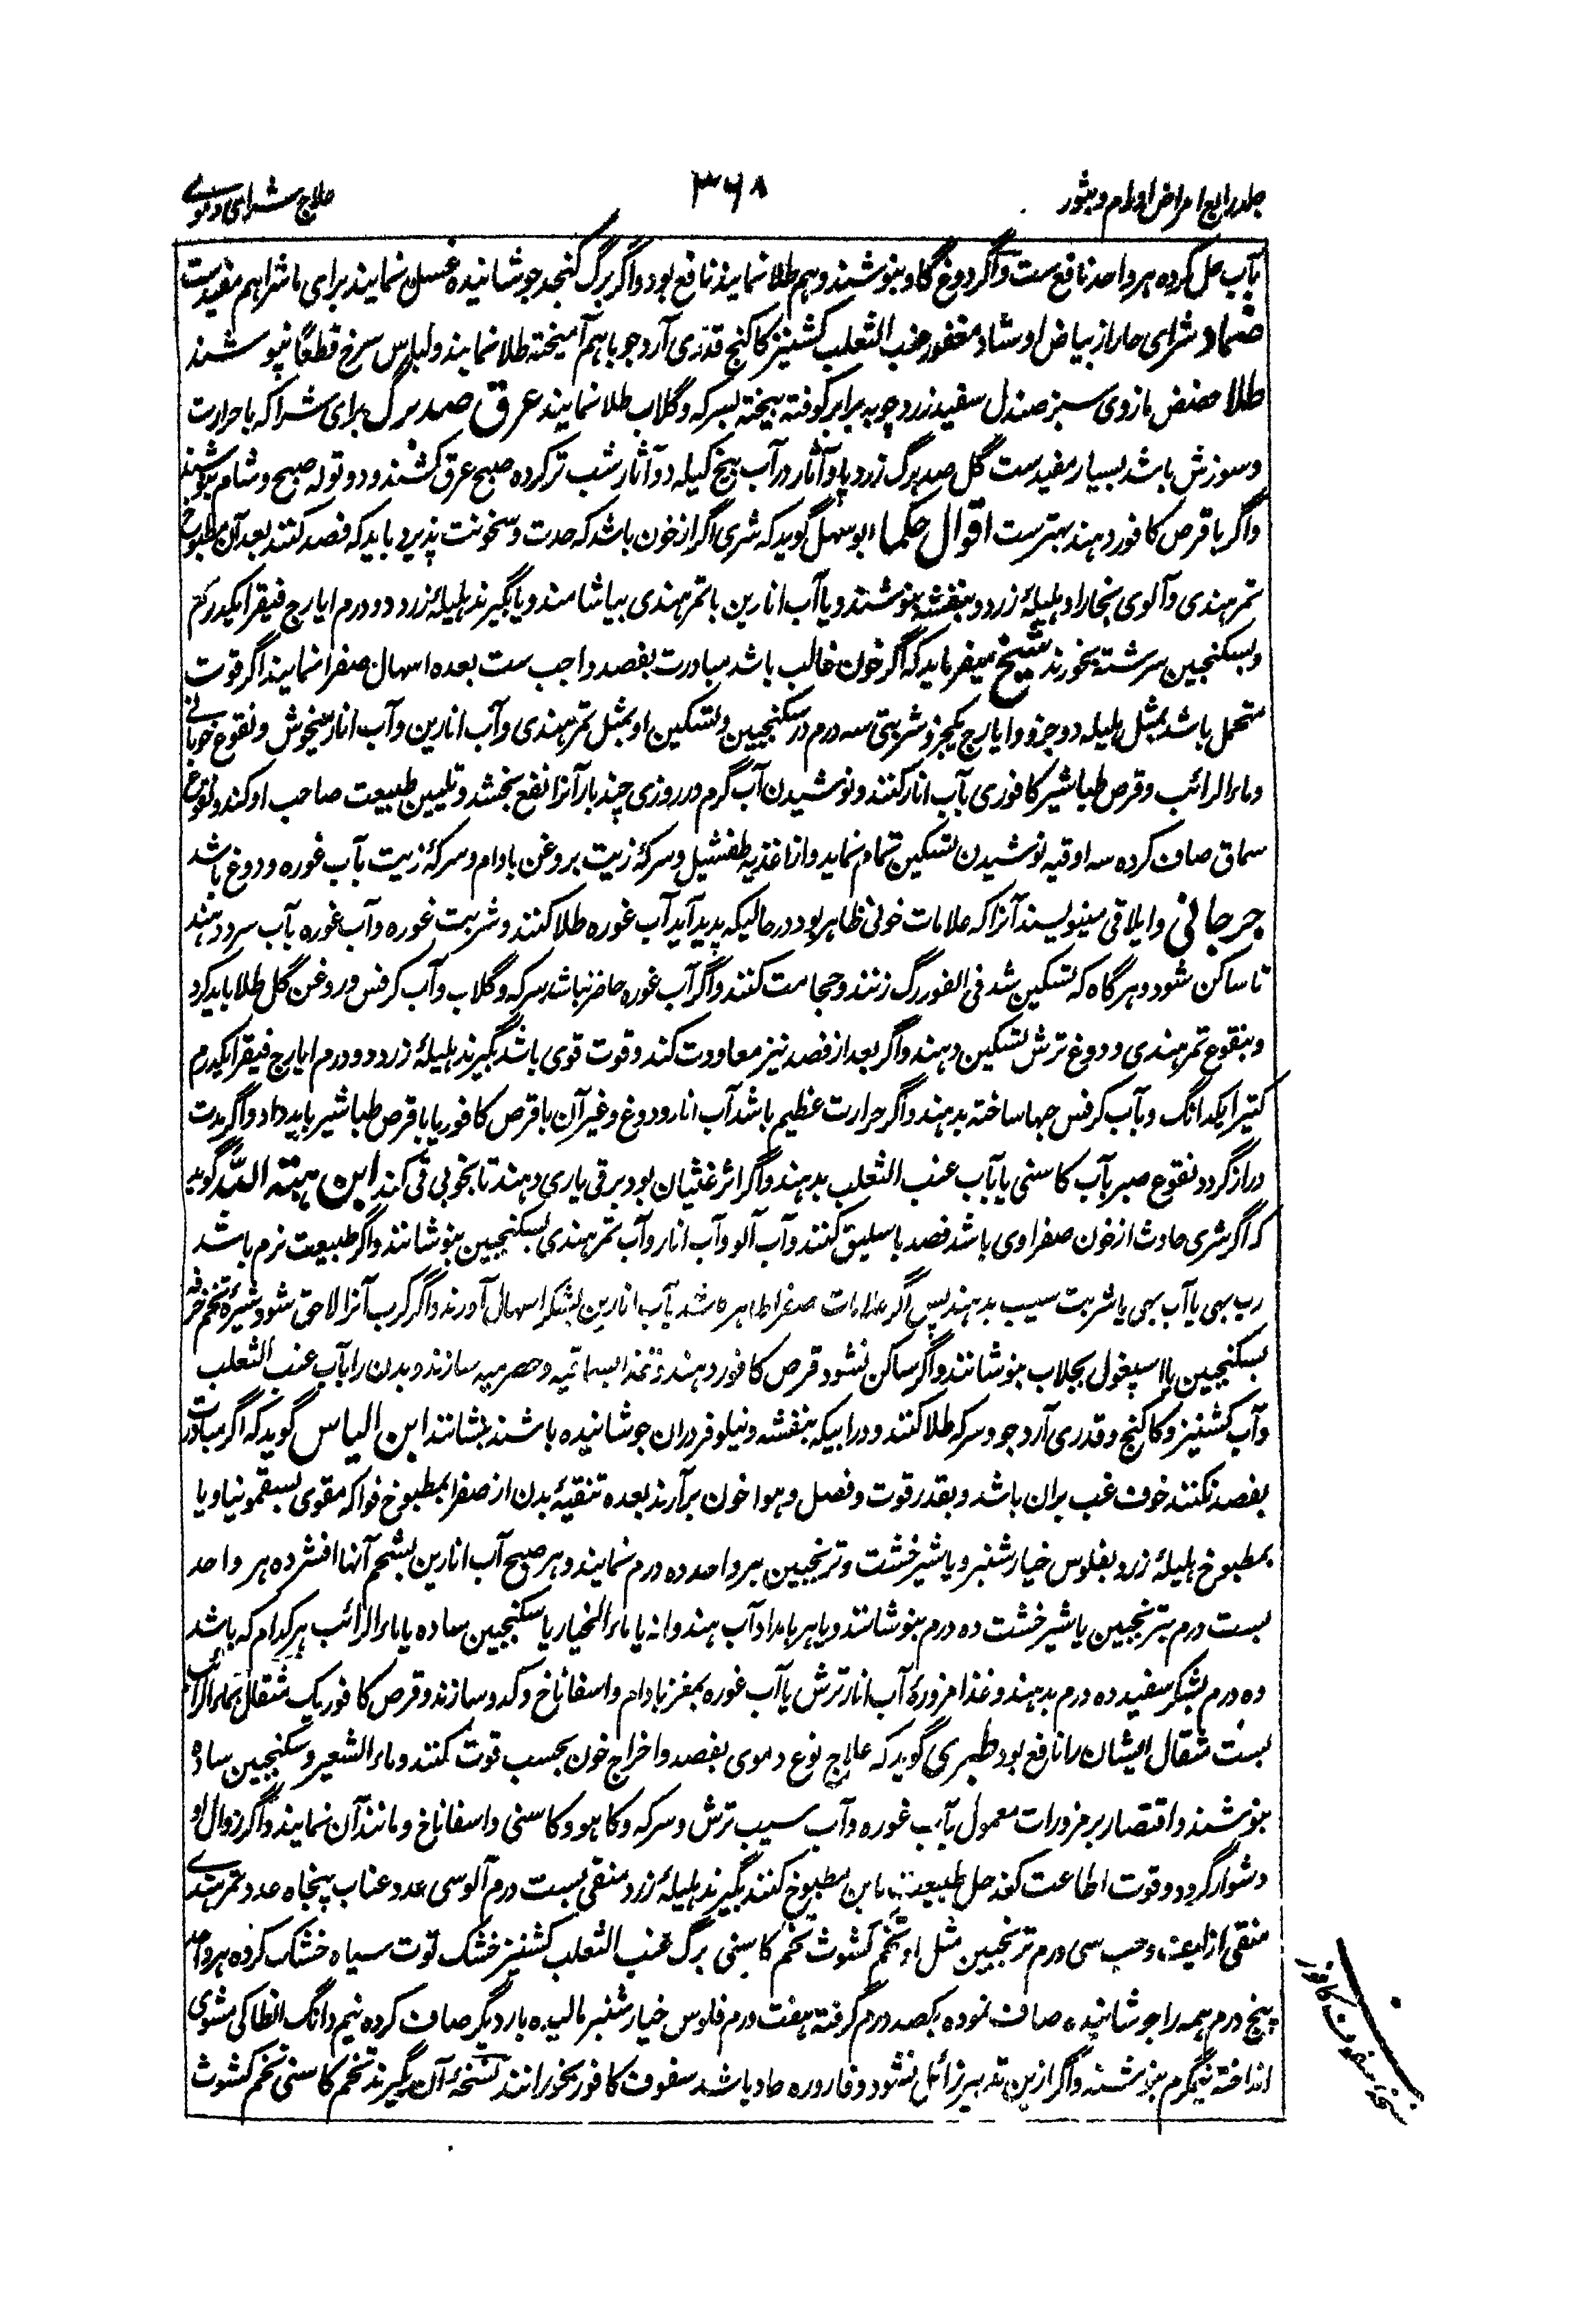 جلد رابع امراض اورام و بثور
۳۶۸
علاج شرای دموی
بآب حل کرده هر واحد نافع ست و اگر دوغ گاو بنوشند و هم طلا نمایند نافع بود و اگر برگ کنجد جوشانیده غسل نمایند برای ماشرا هم مفیدست
ضماد شرای حار از بیاض اوستاد مغفور عنب الثعلب کشنیز کاکنج قدری آرد جو باهم آمیخته طلا نمایند و لباس سرخ قطعاً نپوشند
طلا حضض مازوی سبز صندل سفید زرد چوبه برابر کوفته بیخته بسرکه و گلاب طلا نمایند عرق صد برگ برای شرا که با حرارت
و سوزش باشد بسیار مفیدست گل صد برگ زرد پاو آثار در آب بیخ کیله دو آثار شب تر کرده صبح عرق کشند و دو توله صبح و شام بنوشند
و اگر با قرص کافور دهند بهترست اقوال حکما ابو سهل گوید که شری اگر از خون باشد که حدت و سخونت پذیرد باید که فصد کنند بعد آن مطبوخ
تمر هندی و آلوی بخارا و هلیلهٔ زرد و بنفشه بنوشند و یا آب انارین با تمر هندی بیاشامند و یا بگیرند هلیلهٔ زرد دو درم ایارج فیقرا یکدرم
و بسکنجبین سرشته بخورند شیخ میفرماید که اگر خون غالب باشد مبادرت بفصد واجب ست بعده اسهال صفرا نمایند اگر قوت
متحمل باشد بمثل هلیله دو جزو و ایارج یکجزو شربتی سه درم در سکنجبین و تسکین او بمثل تمر هندی و آب انارین و آب انار میخوش و نقوع خوبانی
و ماء الرائب و قرص طباشیر کافوری بآب انار کنند و نوشیدن آب گرم در روزی چند بار آنرا نفع بخشد و تلیین طبیعت صاحب او کند و نقوع
سماق صاف کرده سه اوقیه نوشیدن تسکین تمام نماید و از اغذیه طفشیل و سرکهٔ زیت بروغن بادام و سرکهٔ زیت بآب غوره و دوغ باشد
جرجانی و ایلاقی مینویسند آنرا که علامات خونی ظاهر بود در حالیکه پدید آید آب غوره طلا کنند و شربت غوره و آب غوره بآب سرد دهند
تا ساکن شود و هر گاه که تسکین شد فی الفور رگ زنند و حجامت کنند و اگر آب غوره حاضر نباشد سرکه و گلاب و آب کرفس و روغن گل طلا باید کرد
و بنقوع تمر هندی و دوغ ترش تسکین دهند و اگر بعد از فصد نیز معاودت کند و قوت قوی باشد بگیرند هلیلهٔ زرد دو درم ایارج فیقرا یکدرم
کتیرا یکدانگ و بآب کرفس حبها ساخته بدهند و اگر حرارت عظیم باشد آب انار و دوغ و غیر آن با قرص کافور یا با قرص طباشیر باید داد و اگر مدت
دراز گردد نقوع صبر بآب کاسنی یا بآب عنب الثعلب بدهند و اگر اثر غثیان بود بر قی یاری دهند تا بخوبی قی کند ابن هبة الله گوید
که اگر شری حادث از خون صفراوی باشد فصد باسلیق کنند و آب آلو و آب انار و آب تمر هندی بسکنجبین بنوشانند و اگر طبیعت نرم باشد
رب بهی یا آب بهی یا شربت سیب بدهند پس اگر علامات صفرا ظاهر باشد بآب انارین بشکر اسهال آورند و اگر کرب آنرا لاحق شود شیرهٔ تخم خرفه
بسکنجبین یا اسپغول بجلاب بنوشانند و اگر ساکن نشود قرص کافور دهند و غذا سماقیه و حصرمیه سازند و بدن را بآب عنب الثعلب
و آب کشنیز و کاکنج و قدری آرد جو و سرکه طلا کنند و در آبیکه بنفشه و نیلوفر دران جوشانیده باشند بنشانند ابن الیاس گوید که اگر مبادرت
بفصد نکنند خوف غب بران باشد و بقدر قوت و فصل و هوا خون برآرند بعده تنقیهٔ بدن از صفرا بمطبوخ فواکه مقوی بسقمونیا و یا
بمطبوخ هلیلهٔ زرد بفلوس خیارشنبر و یا شیرخشت و ترنجبین هر واحد ده درم نمایند و هر صبح آب انارین بشحم آنها افشرده هر واحد
بست درم بترنجبین یا شیرخشت ده درم بنوشانند و یا هر بامداد آب هندوانه یا ماء الخیار یا سکنجبین ساده یا ماء الرائب هر کدام که باشد
ده درم بشکر سفید ده درم بدهند و غذا مزورهٔ آب انار ترش یا آب غوره بمغز بادام و اسفاناخ و کدو سازند و قرص کافور یک مثقال بماء الرائب
بست مثقال ایشان را نافع بود طبری گوید که علاج نوع دموی بفصد و اخراج خون بحسب قوت کنند و ماء الشعیر و سکنجبین ساده
بنوشند و اقتصار بر مزورات معمول بآب غوره و آب سیب ترش و سرکه و کاهو و کاسنی و اسفاناخ و مانند آن نمایند و اگر زوال او
دشوار گردد و قوت اطاعت کند حل طبیعت باین مطبوخ کنند بگیرند هلیلهٔ زرد منقی بست درم آلو سی عدد عناب پنجاه عدد تمر هندی
منقی از لیف و حب سی درم ترنجبین مثل او تخم کشوث تخم کاسنی برگ عنب الثعلب کشنیز خشک توت سیاه خشک کرده هر واحد
پنج درم همه را جوشانیده صاف نموده یکصد درم گرفته هفت درم فلوس خیارشنبر مالیده بار دیگر صاف کرده نیم دانگ انطاکی مشوی
انداخته نیمگرم بنوشند و اگر ازین تدبیر زائل نشود و قاروره حاد باشد سفوف کافور بخورانند نسخهٔ آن بگیرند تخم کاسنی تخم کشوث
نسخهٔ سفوف کافور